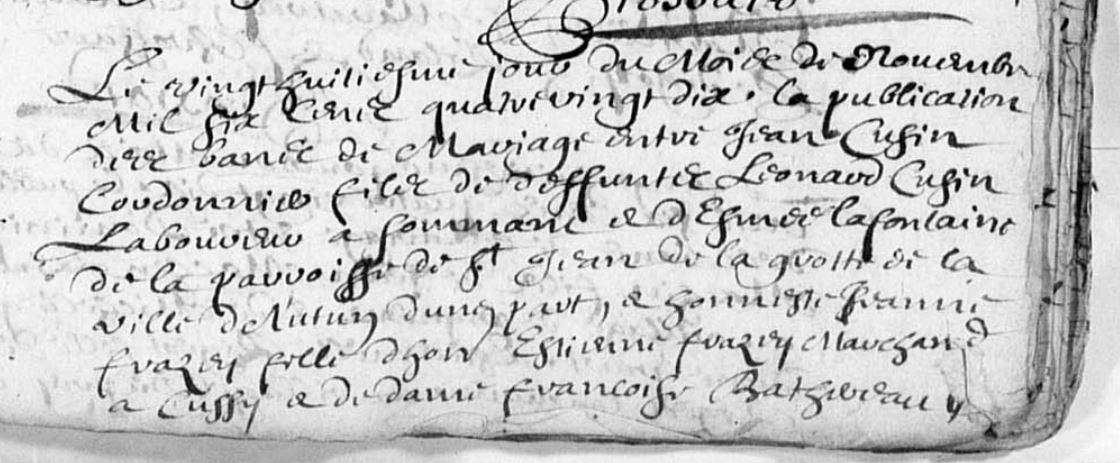 Le vingt huitiesme jour du Mois de Novembre
Mil six cents quatrevingt dix. la publication
des bancs de Mariage entre Jean Cusin
Cordonnier fils de deffuncts Leonard Cusin
Laboureur a Sommant & d'Esmee lafontaine
de la parroisse de St Jean de la grotte de la
ville d'Autun d'une part, & honneste Jeanne
frazey fille d'hon Estienne frazey Marchand
a Cussy & de dame francoise